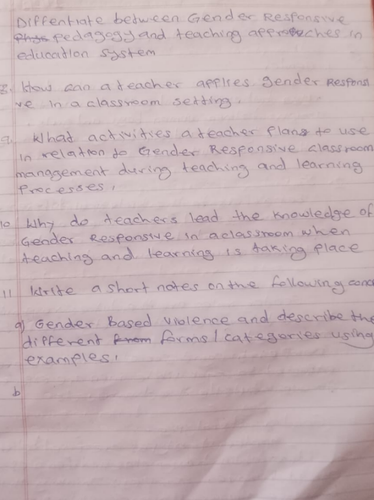 Diffentiate between Gender Responsive
pedagogy and teaching approches in
education system
8. How can a teacher applies gender Respons
ve in a classroom setting.
9. What activities a teacher plans to use
in relation to Gender Responsive classroom
management during teaching and learning
Processes.
10. Why do teachers lead the knowledge of
Gender Responsive in a classroom when
teaching and learning is taking place
11. Write a short notes on the following conc
a) Gender Based violence and describe the
different from forms/categories using
examples.
b